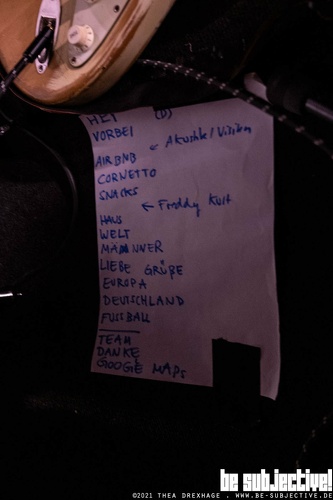 HEY (D)
VORBEI
AIRBNB ← Akustik / Vision
CORNETTO
SNACKS
← Freddy Kurt
HAUS
WELT
MÄNNER
LIEBE GRÜßE
EUROPA
DEUTSCHLAND
FUSSBALL
TEAM
DANKE
GOOGE MAPS
be subjective!
©2021 THEA DREXHAGE . WWW.BE-SUBJECTIVE.DE